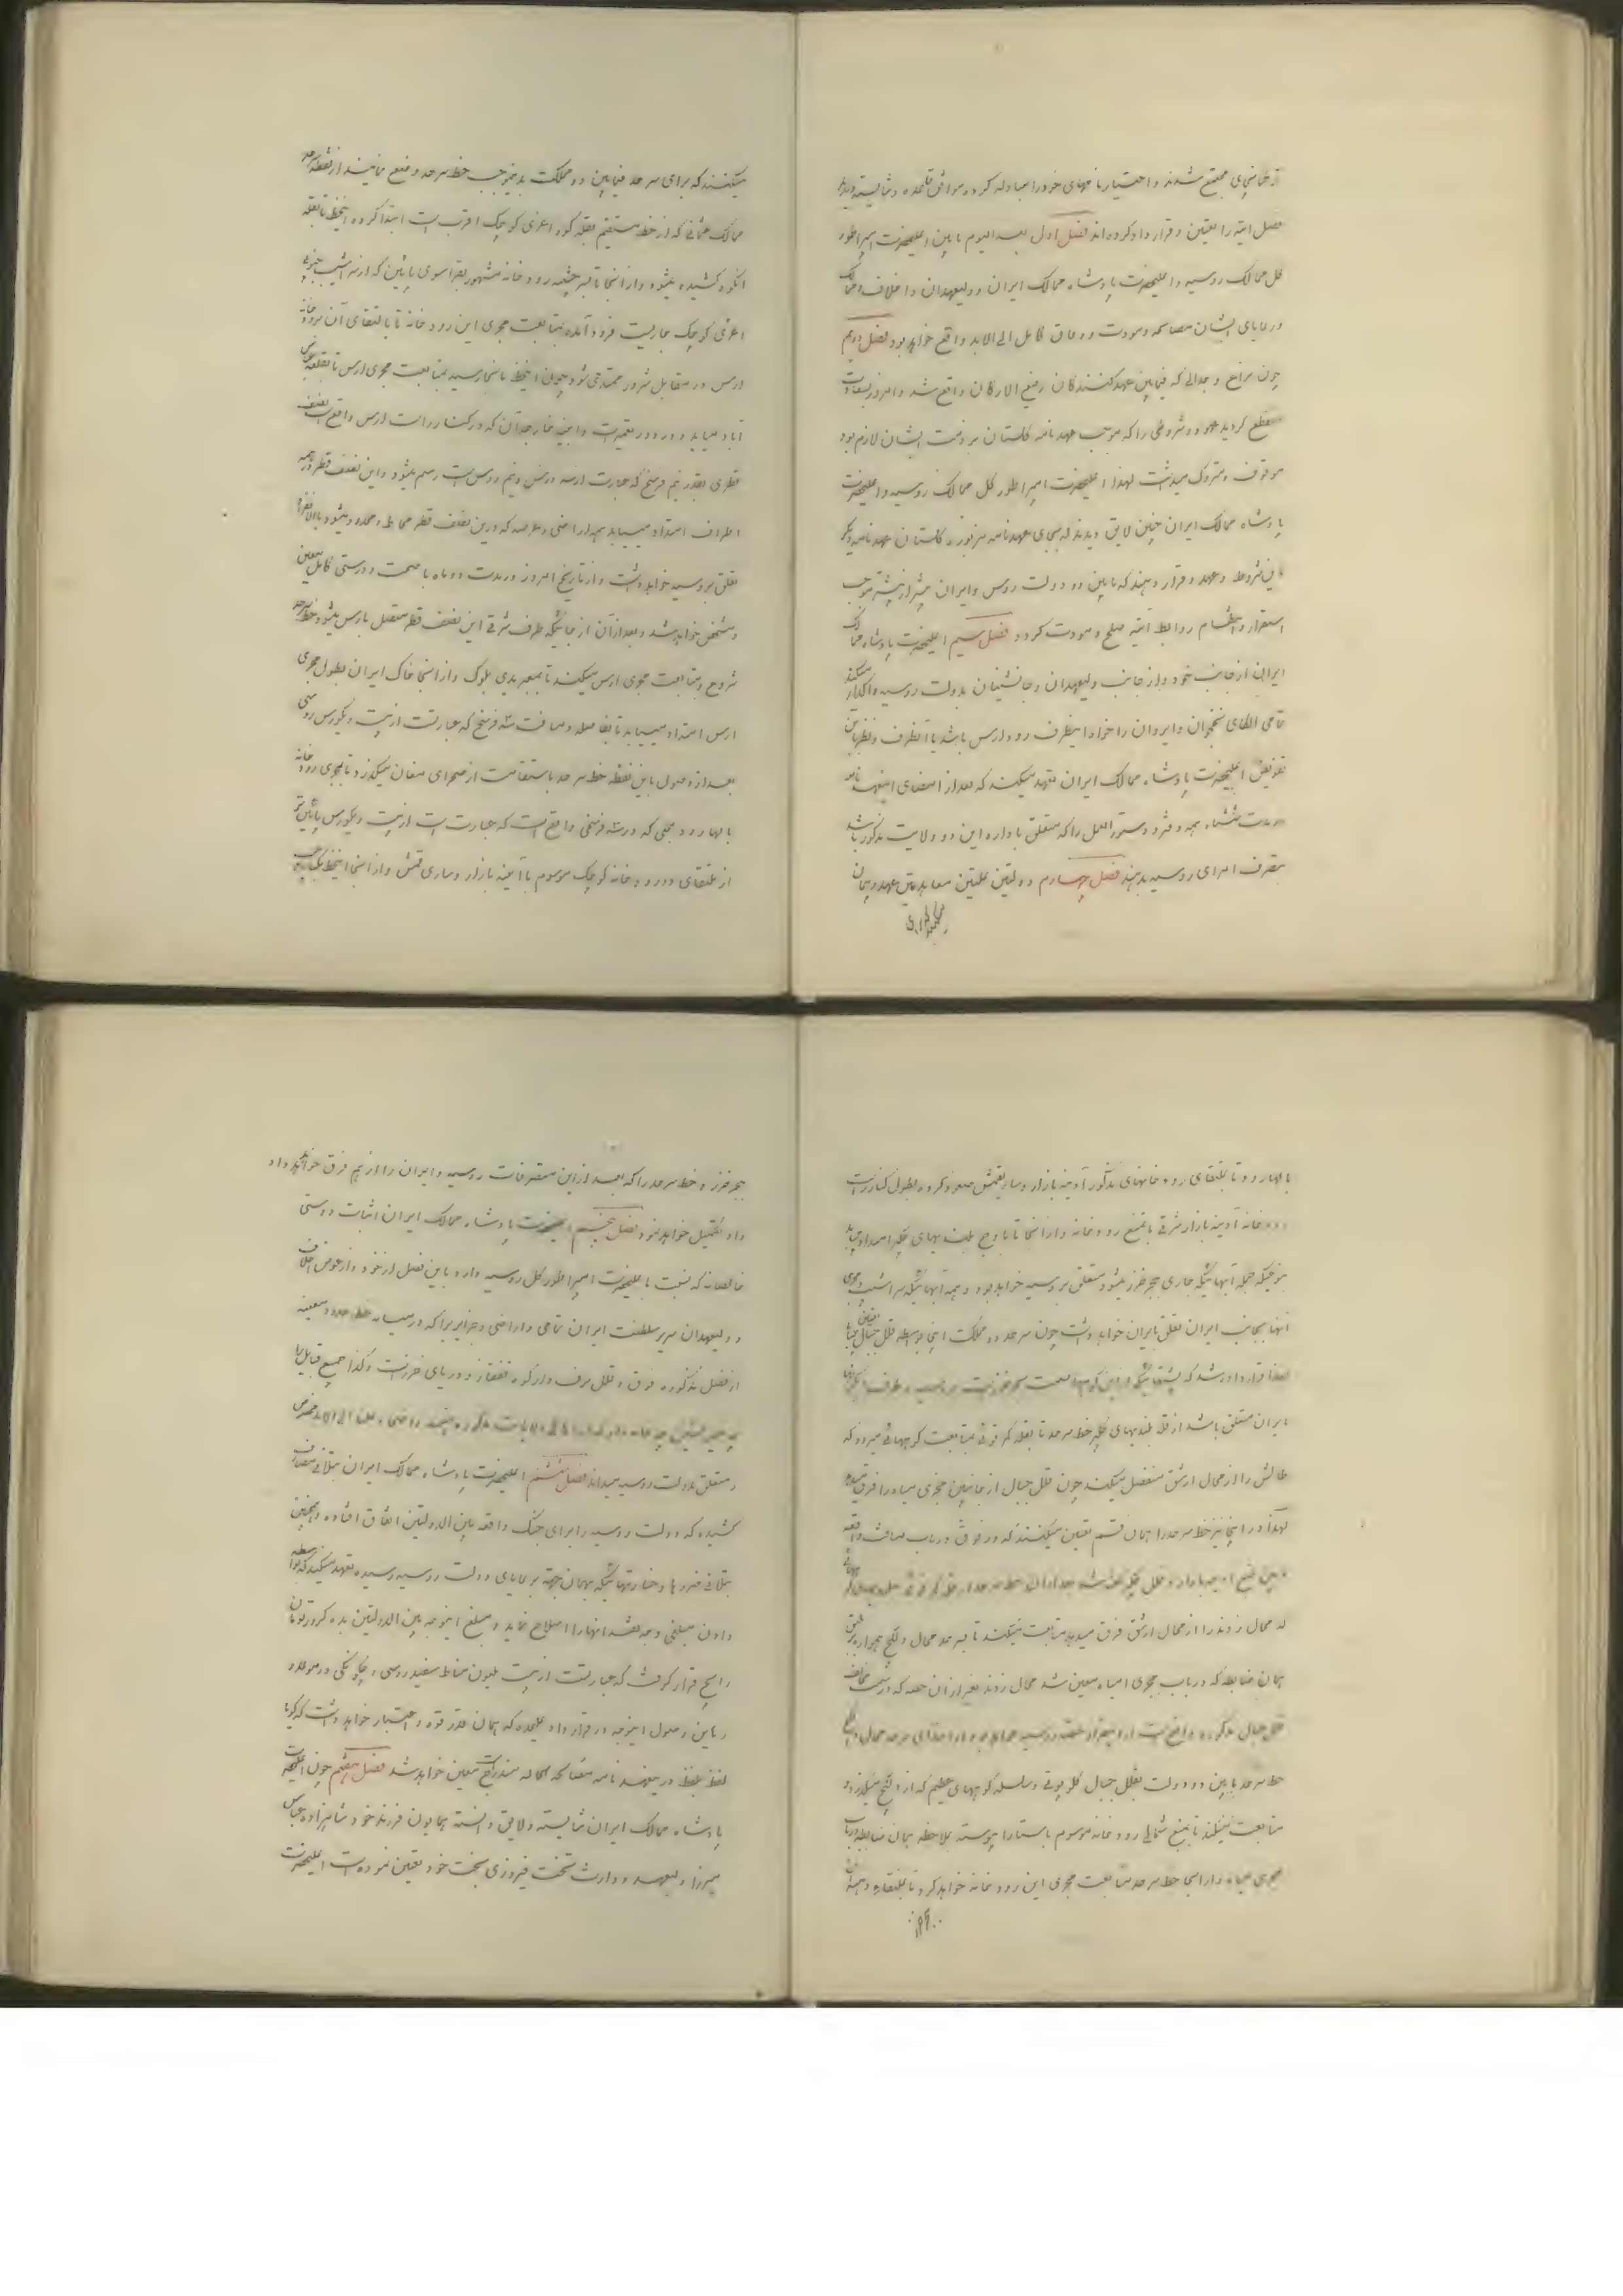 ترکمانچای مجتمع شدند و اختیارنامهای خود را مبادله کرده و موافق قاعده و شایسته دیدند
فصل آتیه را تعیین و قرارداد کرده‌اند فصل اول بعد الیوم مابین اعلیحضرت امپراطور
کل ممالک روسیه و اعلیحضرت پادشاه ممالک ایران و ولیعهدان و اخلاف و ممالک
و رعایای ایشان مصالحه و مودت و وفاق کامل الی الابد واقع خواهد بود فصل دویم
چون نزاع و جدالی که فیمابین عهد کنندگان رفیع الارکان واقع شد و امروز بسعادت
منقطع گردید عهود و شروطی را که بموجب عهدنامه گلستان بر ذمت ایشان لازم بود
موقوف و متروک میدشت لهذا اعلیحضرت امپراطور کل ممالک روسیه و اعلیحضرت
پادشاه ممالک ایران چنین لایق دیدند که بجای عهدنامه مزبوره گلستان عهدنامه دیگر
باین شروط و عهد و قرار دهند که مابین دو دولت روس و ایران بیشتر از پیشتر موجب
استقرار و انتظام روابط آتیه صلح و مودت گردد فصل سیم اعلیحضرت پادشاه ممالک
ایران از جانب خود و از جانب ولیعهدان و جانشینان بدولت روسیه واگذار میکند
تمامی الکای نخجوان و ایروان را خواه اینطرف رود ارس باشد یا آنطرف و نظر باین
تفویض اعلیحضرت پادشاه ممالک ایران تعهد میکند که بعد از امضای اینعهدنامه
در مدت ششماه همه دفتر و دستورالعمل را که متعلق باداره این دو ولایت مذکوره باشد
بتصرف امرای روسیه بدهند فصل چهارم دولتین علیتین معاهدتین عهد و پیمان
میکنند که برای سرحد فیمابین دو مملکت بدینموجب خط سرحد وضع نمایند از نقطه سرحد
ممالک عثمانی که از خط مستقیم بقله کوه اغری کوچک اقرب است ابتدا کرده اینخط تا بقله
آنکوه کشیده میشود و از آنجا تا سرچشمه رودخانه مشهور بقراسوی پائین که از سراشیب جنوبی
اغری کوچک جاریست فرود آمده بمتابعت مجری این رودخانه تا بالتقای آن برودخانه
ارس در مقابل شرور ممتد می شود چون اینخط بآنجا رسید بمتابعت مجری ارس تا بقلعه عباس
آباد میآید و در دور تعمیرات و ابنیه خارجه آن که در کنار راست ارس واقع است نصف
قطری بقدر نیم فرسخ که عبارت از سه ورس و نیم روسی است رسم میشود و این نصف قطر در همه
اطراف امتداد مییابد همه اراضی و عرصه که درین نصف قطر محاط و محدود میشود بالانفراد
تعلق بروسیه خواهد داشت و از تاریخ امروز در مدت دو ماه با صحت و درستی کامل معین
و مشخص خواهد شد و بعد از آن از جائیکه طرف شرقی این نصف قطر متصل بارس میشود خط سرحد
شروع و متابعت مجری ارس میکند تا بمعبر یدی بلوک و از آنجا خاک ایران بطول مجری
ارس امتداد مییابد تا بفاصله و مسافت سه فرسخ که عبارتست از بیست و یکورس روسی
بعد از وصول باین نقطه خط سرحد باستقامت از صحرای مغان میگذرد تا بمجری رودخانه
بالهارود بمحلی که در سه فرسخی واقع است که عبارت است از بیست و یکورس پائین‌تر
از ملتقای دو رودخانه کوچک موسوم بآدینه بازار و ساری قمش و از آنجا اینخط بکنار چپ
بالهارود تا بملتقای رودخانهای مذکور آدینه بازار و ساریقمش صعود کرده بطول کنار راست
رودخانه آدینه بازار شرقی تا بمنبع رودخانه و از آنجا تا باوج بلندیهای جگیر امتداد مییابد
بنوعیکه جمله آبهائیکه جاری ببحر خزر میشود متعلق بروسیه خواهد بود و همه آبهائیکه سراشیب و مجری
آنها بجانب ایران تعلق بایران خواهد داشت چون سرحد دو مملکت اینجا بواسطه قلل جبال تعیین مییابد
لهذا قرار داده شد که پشتهائیکه از این کوهها بسمت بحر خزر است بروسیه و طرف دیگر آنها
بایران متعلق باشد از قله بلندیهای جگیر خط سرحد تا بقله کمرقوئی بمتابعت کوههائی میرود که
طالش را از محال ارشق منفصل میکند چون قلل جبال از جانبین مجری میاه را فرق میدهد
لهذا در اینجا نیز خط سرحد را همان قسم تعیین میکنند که در فوق در باب مسافت واقعه
که محال زوند را از محال ارشق فرق میدهد متابعت میکند تا بسرحد محال ولکیج همواره بر طبق
همان ضابطه که در باب مجری میاه معین شد محال زوند بغیر از آن حصه که در سمت مخالف
خط سرحد مابین دو دولت بقلل جبال کلوپوتی و سلسله کوههای عظیم که از ولکیج میگذرد
متابعت میکند تا بمنبع شمالی رودخانه موسوم باستارا پیوسته بملاحظه همان ضابطه در باب
مجری میاه و از آنجا خط سرحد متابعت مجری این رودخانه خواهد کرد تا بملتقای دهنه آن
ببحر خزر و خط سرحد را که بعد از این متصرفات روسیه و ایران را از هم فرق خواهد داد
داد تکمیل خواهد نمود فصل پنجم اعلیحضرت پادشاه ممالک ایران اثبات دوستی
خالصانه که نسبت باعلیحضرت امپراطور کل روسیه دارد باین فصل از خود و از عوض اخلاف
و ولیعهدان سریر سلطنت ایران تمامی و اراضی و جزایر را که در میانه خط حدود معینه
از فصل مذکوره فوق و قلل برف دار کوه قفقاز و دریای خزر است و کذا جمیع قبایل را
و متعلق بدولت روسیه میداند فصل ششم اعلیحضرت پادشاه ممالک ایران بتلافی مصارف
کشیده که دولت روسیه را برای جنگ واقعه بین الدولتین اتفاق افتاده و همچنین
بتلافی ضررها و خسارتهائیکه بهمان جهة برعایای دولت روسیه رسیده تعهد میکند که بواسطه
دادن مبلغی وجه نقد آنها را اصلاح نماید و مبلغ اینوجه بین الدولتین بده کرور تومان
رایج قرار گرفت که عبارتست از بیست ملیون مناط سفید روسی و چگونگی در موعد و
رهاین وصول اینوجه در قرارداد علیحده که همان قدر قوه و اعتبار خواهد داشت که گویا
لفظ بلفظ در عهدنامه مصالحه الحاله مندرج است معین خواهد شد فصل هفتم چون اعلیحضرت
پادشاه ممالک ایران شایسته و لایق دانسته همایون فرزند خود شاهزاده عباس
میرزا ولیعهد و وارث تخت فیروزی بخت خود تعیین نموده است اعلیحضرت